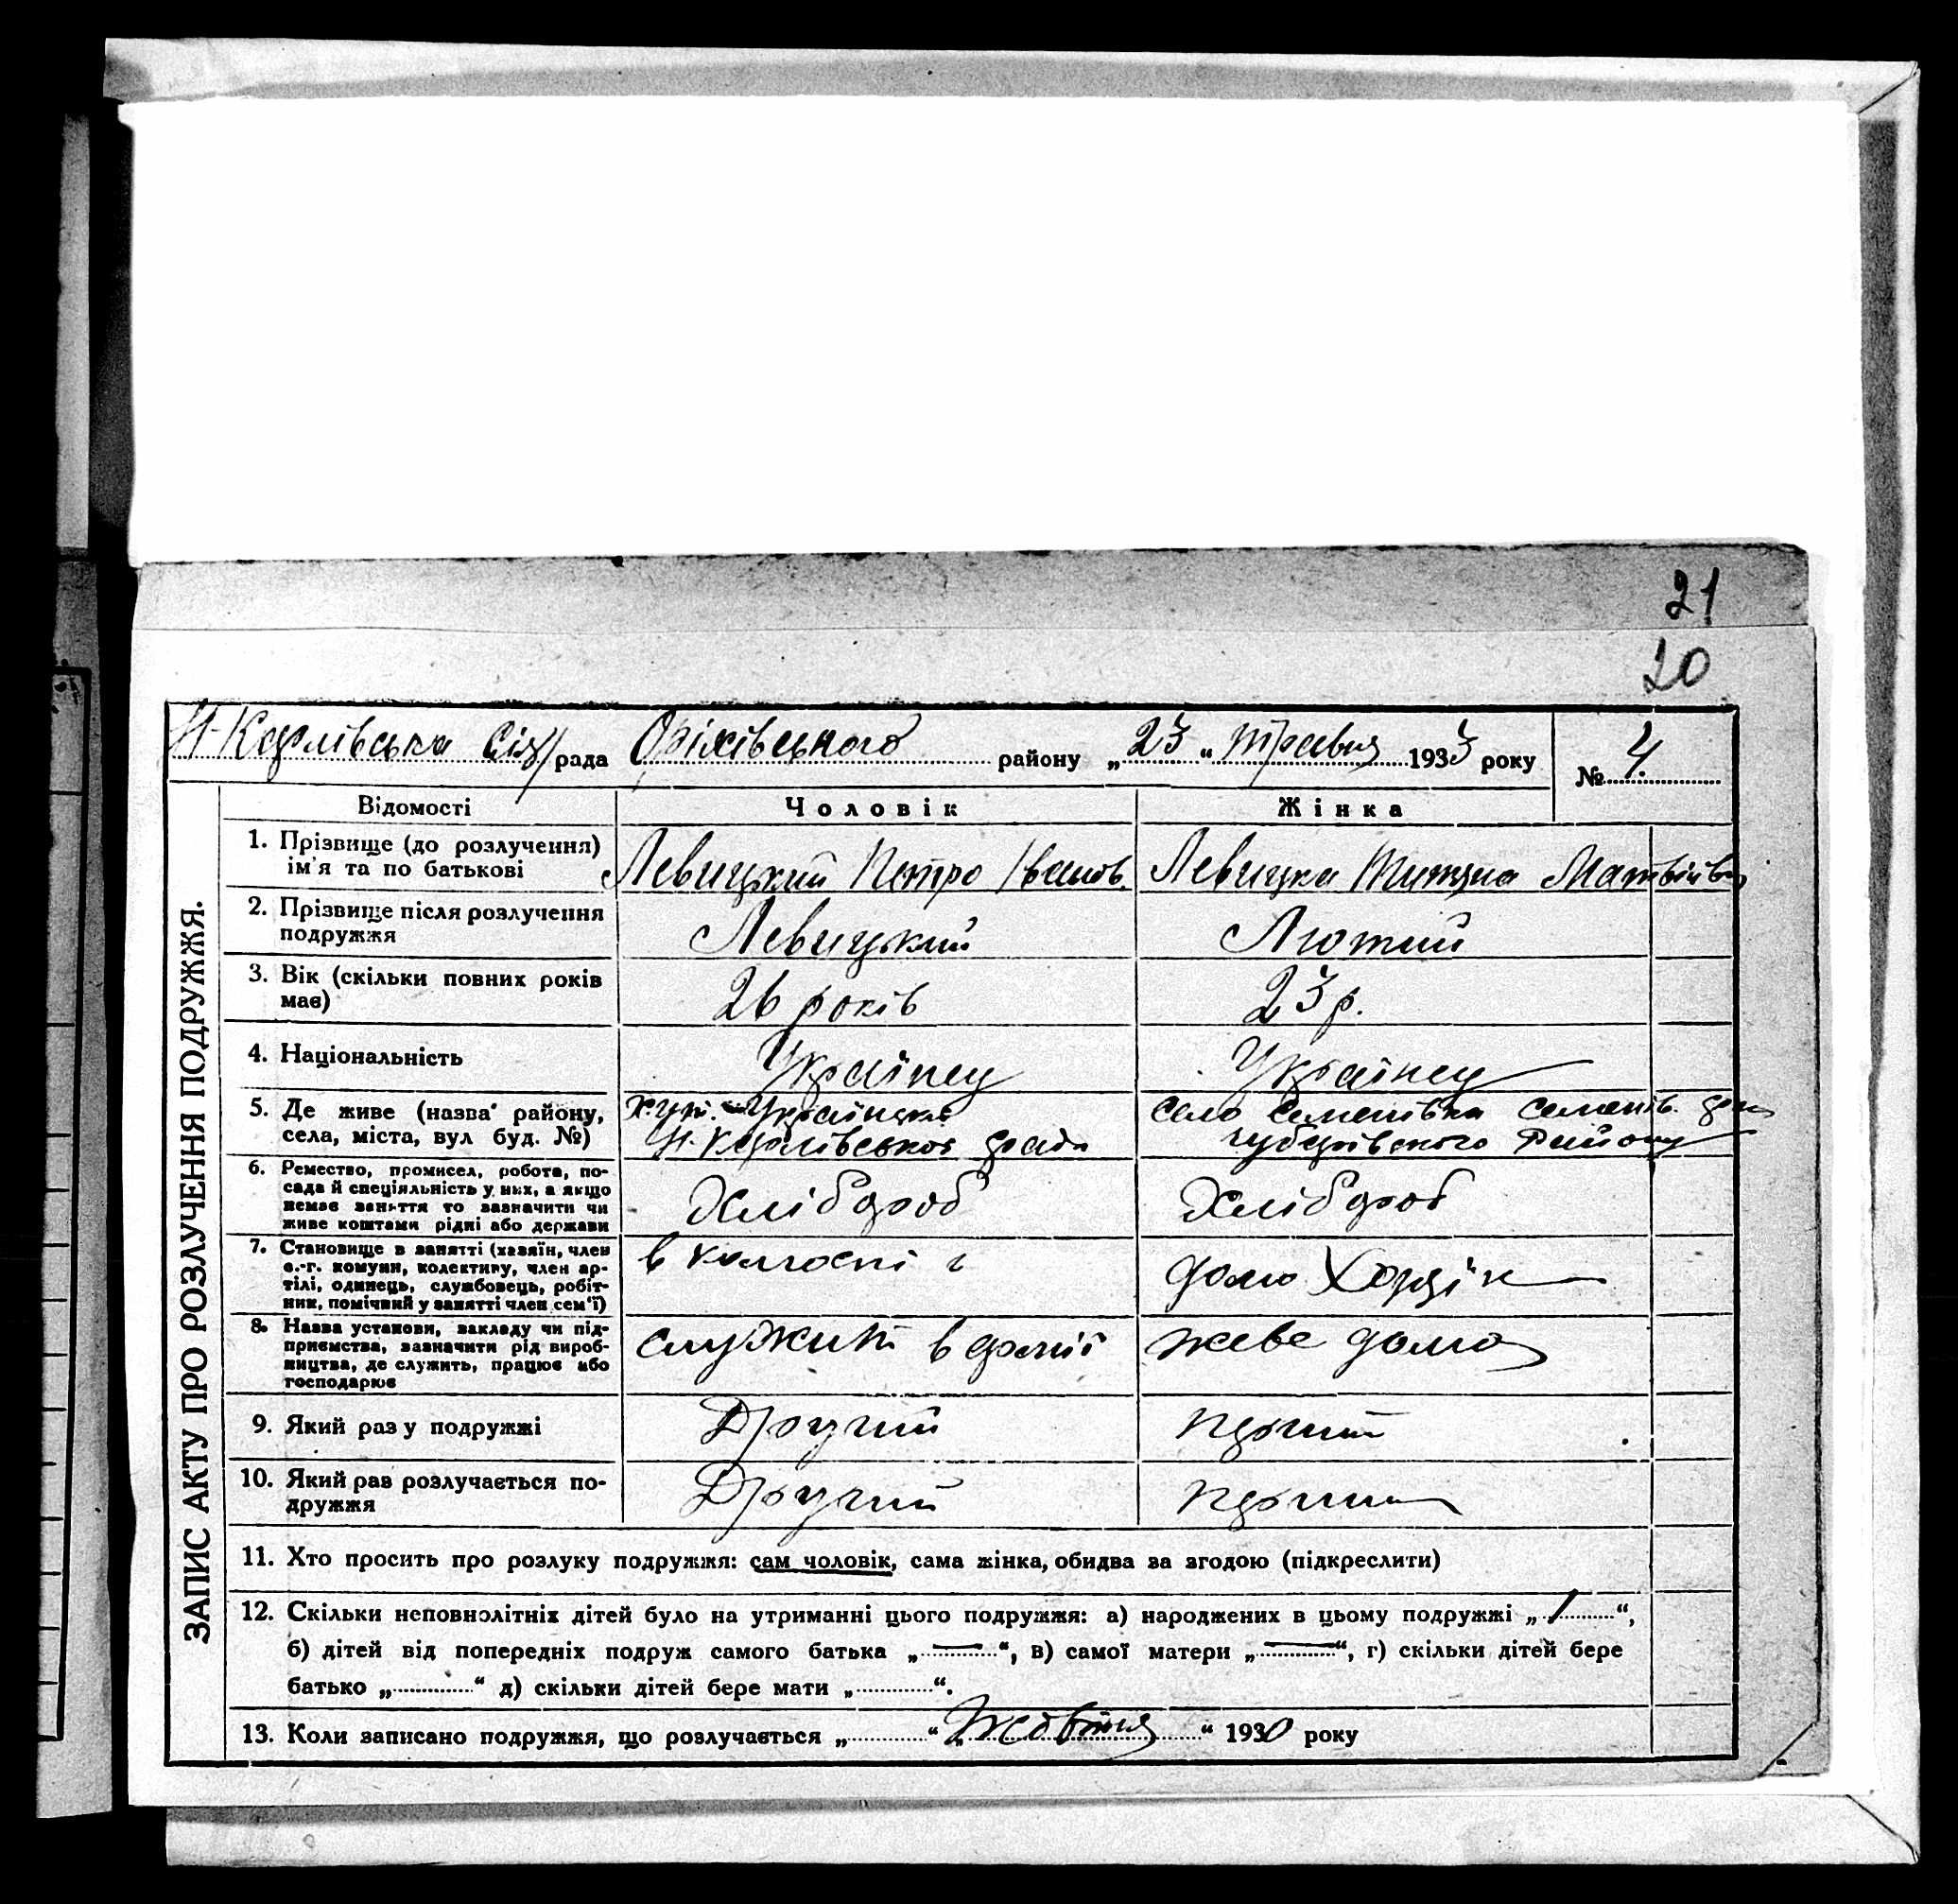 21
20
Н-Карлівська Сіл/рада Оріхівського району „23“ травня 1933 року № 4.
ЗАПИС АКТУ ПРО РОЗЛУЧЕННЯ ПОДРУЖЖЯ.
Відомості Чоловік Жінка
1. Прізвище (до розлучення) ім'я та по батькові Левицький Петро Іванов. Левицка Матвіївна
2. Прізвище після розлучення подружжя Левицький Лютий
3. Вік (скільки повних років має) 26 років 23 р.
4. Національність Українец Українец
5. Де живе (назва району, села, міста, вул буд. №) хут. Українська село Семенівка семенів.
Н. Карлівської рада району
6. Ремество, промисел, робота, посада й спеціяльність у них, а якщо немає заняття то зазначити чи живе коштами рідні або держави Хлібороб Хлібороб
7. Становище в занятті (хазяїн, член с.-г. комуни, колективу, член артілі, одинець, службовець, робітник, помічний у занятті член сем'ї) в колгоспі дома
8. Назва установи, закладу чи підприємства, зазначити рід виробництва, де служить, працює або господарює служит в армії жеве дома
9. Який раз у подружжі Другий первий
10. Який раз розлучається подружжя Другий первий
11. Хто просить про розлуку подружжя: сам чоловік, сама жінка, обидва за згодою (підкреслити)
12. Скільки неповнолітніх дітей було на утриманні цього подружжя: а) народжених в цьому подружжі „1“,
б) дітей від попередніх подруж самого батька „—“, в) самої матери „—“, г) скільки дітей бере
батько „..........“ д) скільки дітей бере мати „..........“.
13. Коли записано подружжя, що розлучається „..........“ „Жовтня“ 1930 року